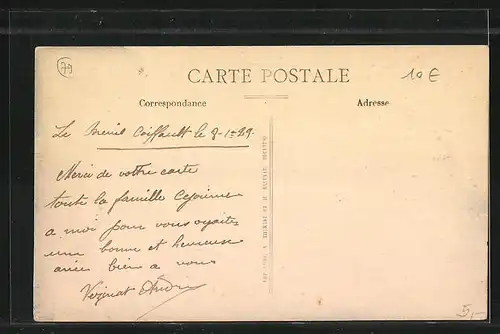 79
CARTE POSTALE
10 €
Correspondance
Adresse
Le Breuil Coiffault le 8-1-29
Merci de vottre carte
toute la famille ce joiniez
a moi pour vous
une bonne et heureuse
anée bien a vous
André
5,—